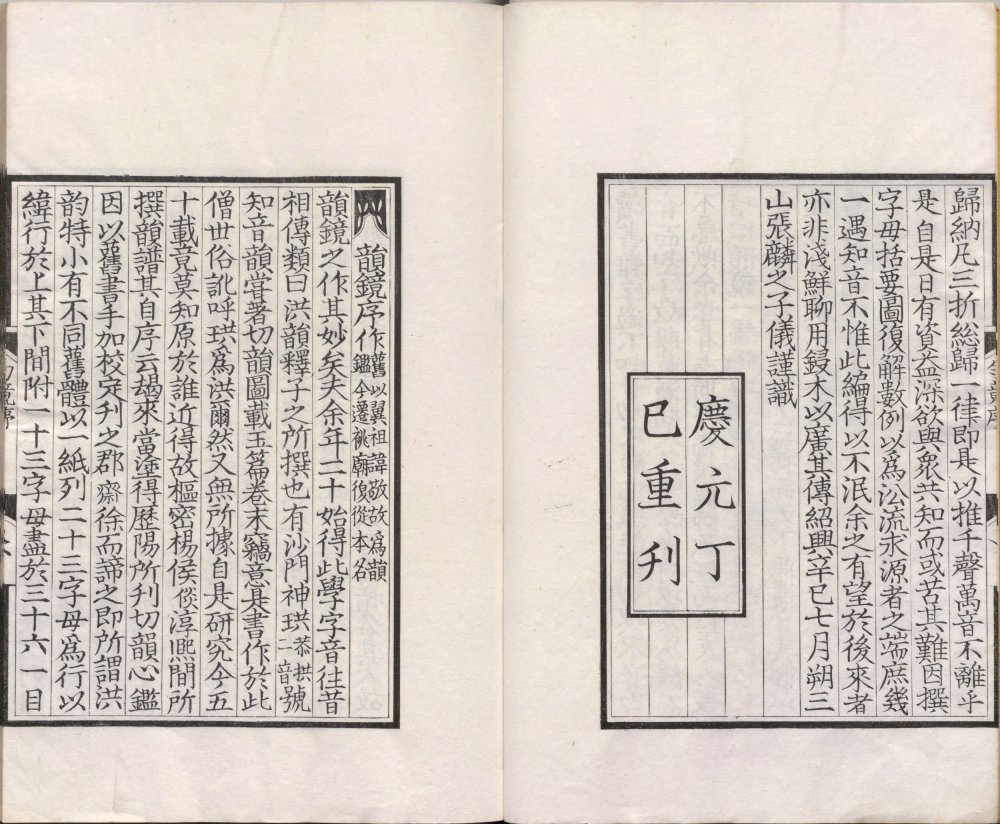 歸納凡三折総歸一律即是以推千聲萬音不離乎
是自是日有資益深欲與衆共知而或苦其難因撰
字母括要圖復解數例以爲㳂流求源者之端庶幾
一遇知音不惟此編得以不泯余之有望於後來者
亦非淺鮮聊用鋟木以廣其傳紹興辛巳七月朔三
山張麟之子儀謹識
慶元丁
巳重刋
韻鏡序作舊以翼祖諱敬故爲韻
鑑今遷祧廟復從本名
韻鏡之作其妙矣夫余年二十始得此學字音往昔
相傳類曰洪韻釋子之所撰也有沙門神珙恭拱二音號
知音韻嘗著切韻圖載玉篇卷末竊意是書作於此
僧世俗訛呼珙爲洪爾然又無所據自是研究今五
十載竟莫知原於誰近得故樞密楊侯倓淳熙間所
撰韻譜其自序云朅來當塗得歷陽所刋切韻心鑑
因以舊書手加校定刋之郡齋徐而諦之即所謂洪
韵特小有不同舊體以一紙列二十三字母爲行以
緯行於上其下間附一十三字母盡於三十六一目